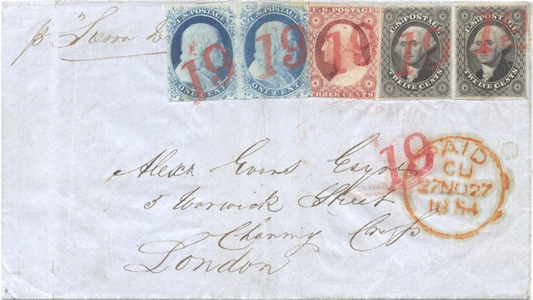 U.S. POSTAGE U.S. POSTAGE U.S. POSTAGE U.S. POSTAGE U.S. POSTAGE
19 19 19 19 19
ONE CENT. ONE CENT. THREE CENTS TWELVE CENTS. TWELVE CENTS.
19
Alexr Evans Esqre
5 Warwick Street
Charing Cross
London
PAID
CU
27NO27
1854